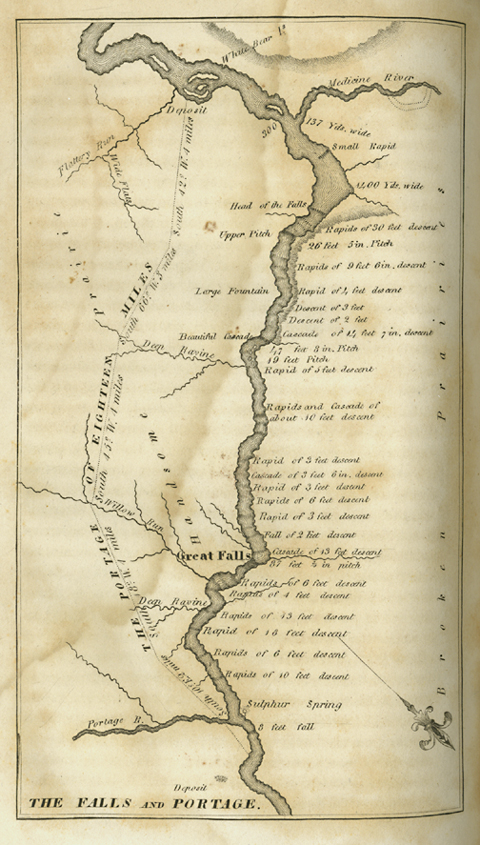 White Bear Is
Medicine River
Deposit
300
137 Yds. wide
Small Rapid
Flattery Run
Wide Flat
South 42° W. 4 miles
Head of the Falls
1400 Yds. wide
Upper Pitch
Rapids of 30 feet descent
26 feet 5 in. Pitch
Rapids of 9 feet 6 in. descent
Large Fountain
Descent of 3 feet
Descent of 2 feet
Prairie
South 66° W. 3 miles
Beautiful Cascade
47 feet 8 in. Pitch
19 feet Pitch
Rapid of 5 feet descent
Deep Ravine
THE PORTAGE OF EIGHTEEN MILES
South 45° W. 4 miles
Rapids and Cascade of
about 40 feet descent
Rapid of 5 feet descent
Cascade of 3 feet 6 in. descent
Rapid of 3 feet descent
Rapids of 6 feet descent
Rapid of 3 feet descent
Handsome
Willow Run
Fall of 2 feet descent
Great Falls
Cascade of 13 feet descent
Rapids of 6 feet descent
Rapids of 4 feet descent
Deep Ravine
Rapids of 13 feet descent
Rapids of 6 feet descent
Rapids of 10 feet descent
Sulphur Spring
Portage R.
8 feet fall
Broken Prairies
Deposit
THE FALLS AND PORTAGE.